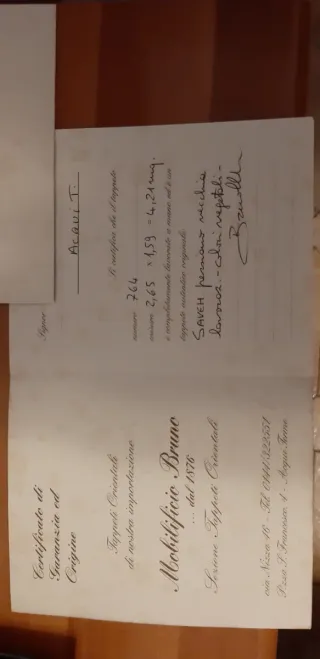 Certificato di
Garanzia ed
Origine
Tappeti Orientali
di nostra importazione
Mobilificio Bruno
... dal 1876
Sezione Tappeti Orientali
via Nizza 10 - Tel. 0144/322551
P.zza S. Francesco, 4 - Acqui Terme
Signor
Si certifica che il tappeto
numero 764
misure 2,65 x 1,59 = 4,21 mq.
è completamente lavorato a mano ed è un
tappeto autentico originale
SAVEH persiano vecchia
lavoraz. - colori vegetali -